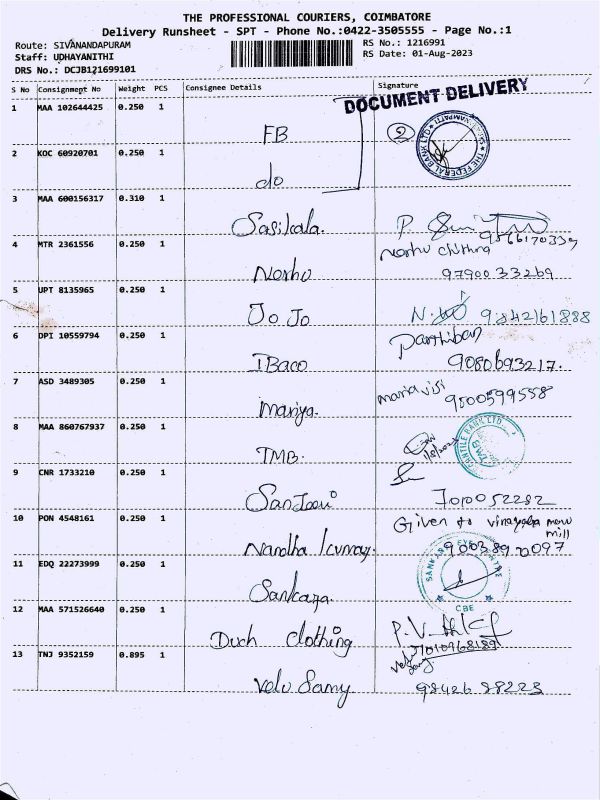 THE PROFESSIONAL COURIERS, COIMBATORE
Delivery Runsheet - SPT - Phone No.:0422-3505555 - Page No.:1
Route: SIVANANDAPURAM
RS No.: 1216991
Staff: UDHAYANITHI
RS Date: 01-Aug-2023
DRS No.: DCJB121699101
S No Consignment No Weight PCS Consignee Details Signature
DOCUMENT DELIVERY
1 MAA 102644425 0.250 1 FB 2
THE FEDERAL BANK LTD
2 KOC 60920701 0.250 1 do
3 MAA 600156317 0.310 1 Sasikala. P.
9566170339
4 MTR 2361556 0.250 1 Noshu
Noshu chithra
9790033269
5 UPT 8135965 0.250 1 JoJo
9842161888
6 DPI 10559794 0.250 1 IBaco
Parthiban
9080693217.
7 ASD 3489305 0.250 1 Mariya.
mariaviji
9500599558
8 MAA 860767937 0.250 1 TMB.
1/8/2023
TMB
9 CNR 1733210 0.250 1 Sanjeevi
7010052282
10 PON 4548161 0.250 1 Nandha kumar.
Given to vinayaga maw
mill
9003890097
11 EDQ 22273999 0.250 1 Sankara.
SANKARA EYE CENTRE
CBE
12 MAA 571526640 0.250 1 Duch clothing
P.V
13 TNJ 9352159 0.895 1 Velu Samy
9842688223